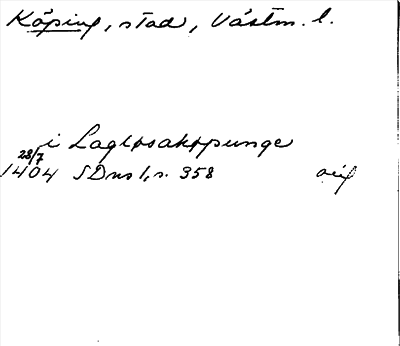 Köping, stad, Västm. l.
i Lagløsakøpunge
28/7
1404 SDns 1, s. 358